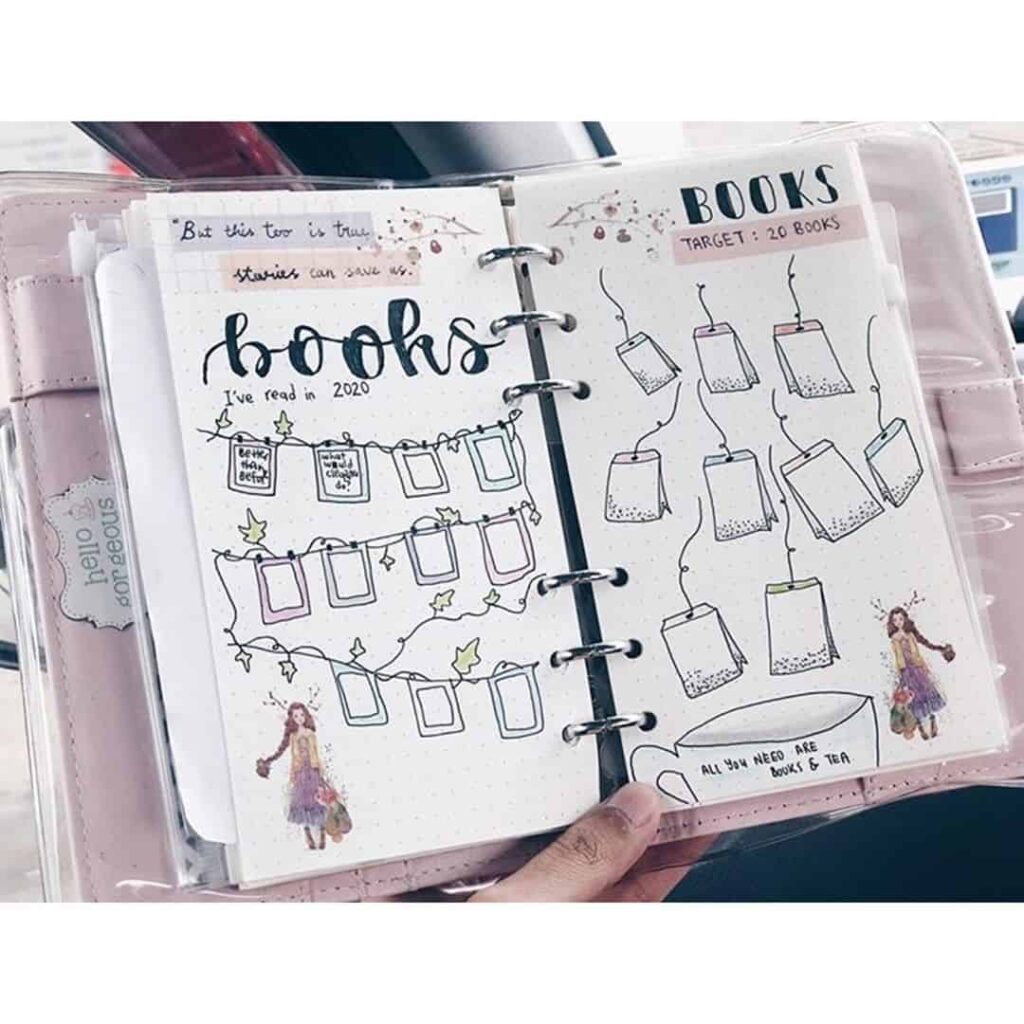 hello
gorgeous
"But this too is true,
stories can save us."
books
I've read in 2020
Better
than
Before
what
would
cleopatra
do?
BOOKS
TARGET : 20 BOOKS
ALL YOU NEED ARE
BOOKS & TEA